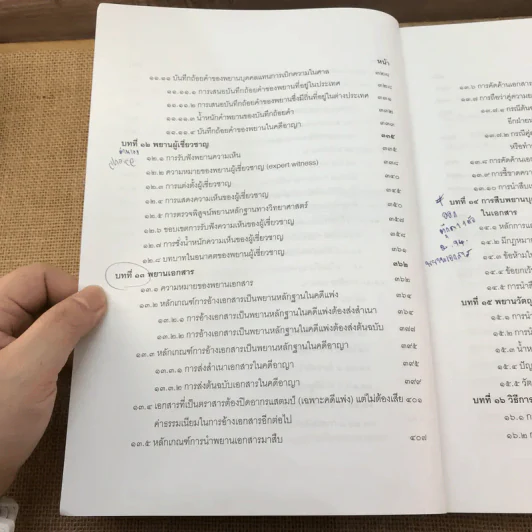 หน้า
๑๑.๑๑ บันทึกถ้อยคำของพยานบุคคลแทนการเบิกความในศาล
๑๑.๑๑.๑ การเสนอบันทึกถ้อยคำของพยานที่อยู่ในประเทศ
๑๑.๑๑.๒ การเสนอบันทึกถ้อยคำของพยานซึ่งมีถิ่นที่อยู่ในต่างประเทศ
๑๑.๑๑.๓ น้ำหนักคำพยานของบันทึกถ้อยคำ
๑๑.๑๑.๔ บันทึกถ้อยคำของพยานในคดีอาญา
บทที่ ๑๒ พยานผู้เชี่ยวชาญ
๑๒.๑ การรับฟังพยานความเห็น
๑๒.๒ ความหมายของพยานผู้เชี่ยวชาญ (expert witness)
๑๒.๓ การแต่งตั้งผู้เชี่ยวชาญ
๑๒.๔ การแสดงความเห็นของผู้เชี่ยวชาญ
๑๒.๕ การตรวจพิสูจน์พยานหลักฐานทางวิทยาศาสตร์
๑๒.๖ ขอบเขตการรับฟังความเห็นของผู้เชี่ยวชาญ
๑๒.๗ การชั่งน้ำหนักความเห็นของผู้เชี่ยวชาญ ๓๕๘
๑๒.๘ บทบาทในอนาคตของพยานผู้เชี่ยวชาญ ๓๖๑
บทที่ ๑๓ พยานเอกสาร ๓๖๒
๑๓.๑ ความหมายของพยานเอกสาร ๓๖๒
๑๓.๒ หลักเกณฑ์การอ้างเอกสารเป็นพยานหลักฐานในคดีแพ่ง ๓๖๔
๑๓.๒.๑ การอ้างเอกสารเป็นพยานหลักฐานในคดีแพ่งต้องส่งสำเนา ๓๖๔
๑๓.๒.๒ การอ้างเอกสารเป็นพยานหลักฐานในคดีแพ่งต้องส่งต้นฉบับ
๑๓.๓ หลักเกณฑ์การอ้างเอกสารเป็นพยานหลักฐานในคดีอาญา ๓๙๕
๑๓.๓.๑ การส่งสำเนาเอกสารในคดีอาญา ๓๙๕
๑๓.๓.๒ การส่งต้นฉบับเอกสารในคดีอาญา ๓๙๙
๑๓.๔ เอกสารที่เป็นตราสารต้องปิดอากรแสตมป์ (เฉพาะคดีแพ่ง) แต่ไม่ต้องเสีย ๔๐๑
ค่าธรรมเนียมในการอ้างเอกสารอีกต่อไป
๑๓.๕ หลักเกณฑ์การนำพยานเอกสารมาสืบ ๔๐๘
๑๓.๖ การคัดค้านเอกสาร
๑๓.๗ การถือว่าคู่ความ
๑๓.๗.๑ กรณีต้น
๑๓.๗.๒ กรณีคู่
หรือทำ
๑๓.๘ การคัดค้านเอก
๑๓.๙ การชี้ขาดความ
๑๓.๑๐ การนำสืบ
บทที่ ๑๔ การสืบพยานบุ
ในเอกสาร
๑๔.๑ หลักการแ
๑๔.๒ มีกฎหมาย
๑๔.๓ ข้อห้าม
๑๔.๔ ข้อยก
๑๔.๕ การนำสื
บทที่ ๑๕ พยานวัตถุ
๑๕.๑ การนำ
๑๕.๒ การนำ
๑๕.๓ น้ำห
๑๕.๔ ปัญ
๑๕.๕ วัต
บทที่ ๑๖ วิธีการ
๑๖.๑ ก
๑๖.๒ ก